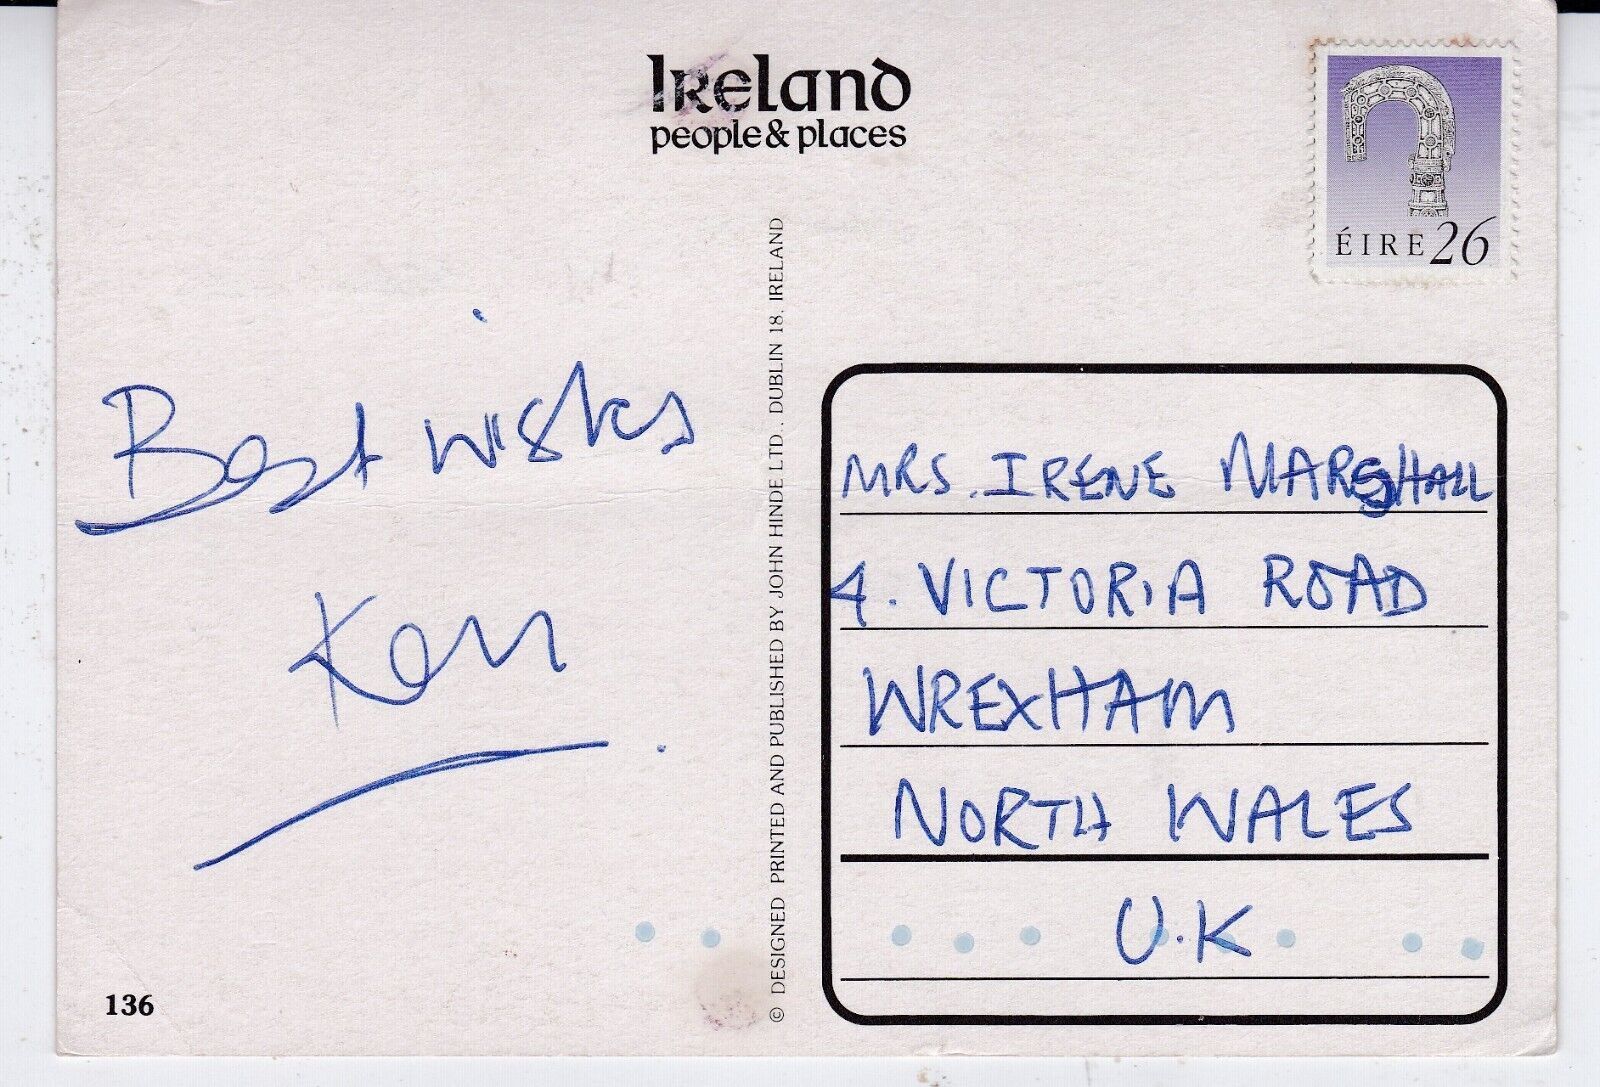 IRELAND
people & places
ÉIRE 26
Best wishes
Ken
© DESIGNED PRINTED AND PUBLISHED BY JOHN HINDE LTD., DUBLIN 18, IRELAND
MRS. IRENE MARSHALL
4. VICTORIA ROAD
WREXHAM
NORTH WALES
U.K
136